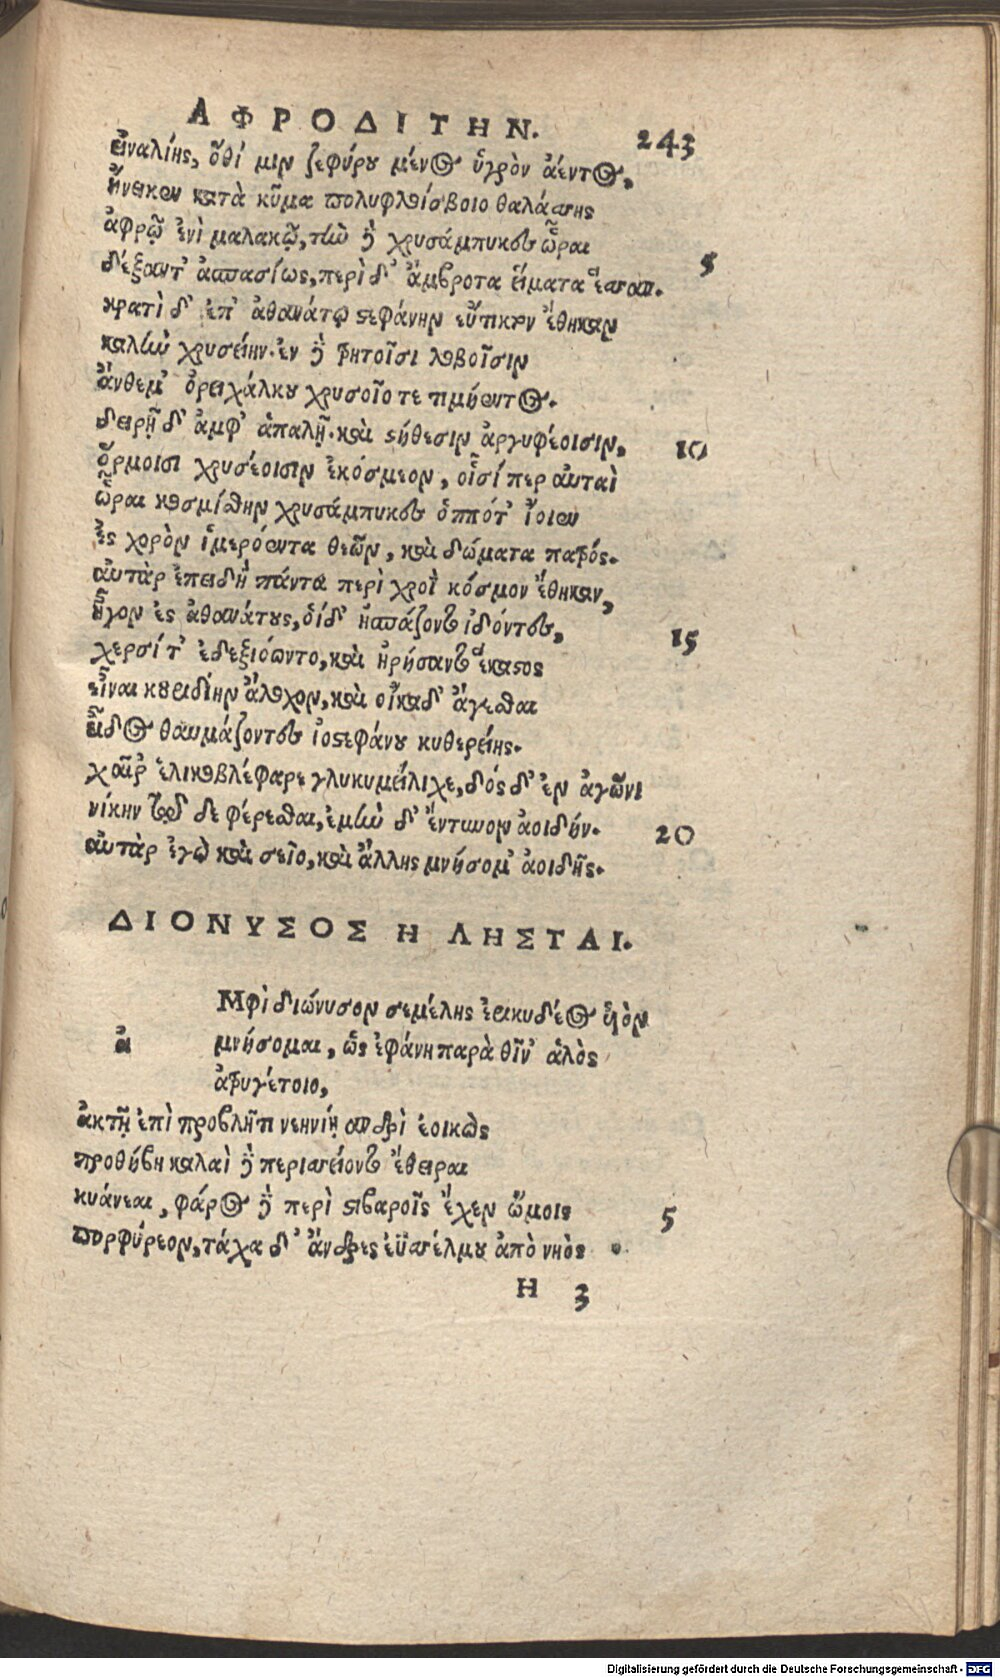 ΑΦΡΟΔΙΤΗΝ. 243
εἰναλίης, ὅθί μιν ζεφύρου μένος ὑγρὸν ἀέντος,
ἤνεικεν κατὰ κῦμα πολυφλοίσβοιο θαλάσσης
ἀφρῷ ἐνὶ μαλακῷ, τὴν δὲ χρυσάμπυκες ὧραι
δέξαντ' ἀσπασίως, περὶ δ' ἄμβροτα εἵματα ἕσσαν. 5
κρατὶ δ' ἐπ' ἀθανάτῳ στεφάνην εὔτικτον ἔθηκαν
καλὴν χρυσείην. ἐν δὲ τρητοῖσι λοβοῖσιν
ἄνθεμ' ὀρειχάλκου χρυσοῖο τε τιμήεντος.
δειρῇ δ' ἀμφ' ἁπαλῇ. καὶ στήθεσιν ἀργυφέοισιν, 10
ὅρμοισι χρυσέοισιν ἐκόσμεον, οἷσί περ αὐταὶ
ὧραι κοσμίσθην χρυσάμπυκες ὁππότ' ἴοιεν
ἐς χορὸν ἱμερόεντα θεῶν, καὶ δώματα πατρός.
αὐτὰρ ἐπειδὴ πάντα περὶ χροῒ κόσμον ἔθηκαν,
ἦγον ἐς ἀθανάτους, οἱ δ' ἠσπάζοντο ἰδόντες, 15
χερσί τ' ἐδεξιόωντο, καὶ ἠρήσαντο ἕκαστος
εἶναι κουριδίην ἄλοχον, καὶ οἴκαδ' ἄγεσθαι
εἶδος θαυμάζοντες ἰοστεφάνου κυθερείης.
χαῖρ' ἑλικοβλέφαρε γλυκυμείλιχε, δός δ' ἐν ἀγῶνι
νίκην τῷδε φέρεσθαι, ἐμὴν δ' ἔντυνον ἀοιδήν. 20
αὐτὰρ ἐγὼ καὶ σεῖο, καὶ ἄλλης μνήσομ' ἀοιδῆς.
ΔΙΟΝΥΣΟΣ Η ΛΗΣΤΑΙ.
Μφὶ διώνυσον σεμέλης ἐρικυδέος υἱὸν
ἀ μνήσομαι, ὡς ἐφάνη παρὰ θῖν' ἁλὸς
ἀτρυγέτοιο,
ἀκτῇ ἐπὶ προβλῆτι νεηνίῃ ανδρὶ ἐοικὼς
προθήβῃ καλαὶ δὲ περισσείοντο ἔθειραι
κυάνεαι, φάρος δὲ περὶ στιβαροῖς ἔχεν ὤμοις 5
πορφύρεον, τάχα δ' ἄνδρες ἐϋσσέλμου ἀπὸ νηὸς
H 3
Digitalisierung gefördert durch die Deutsche Forschungsgemeinschaft - DFG